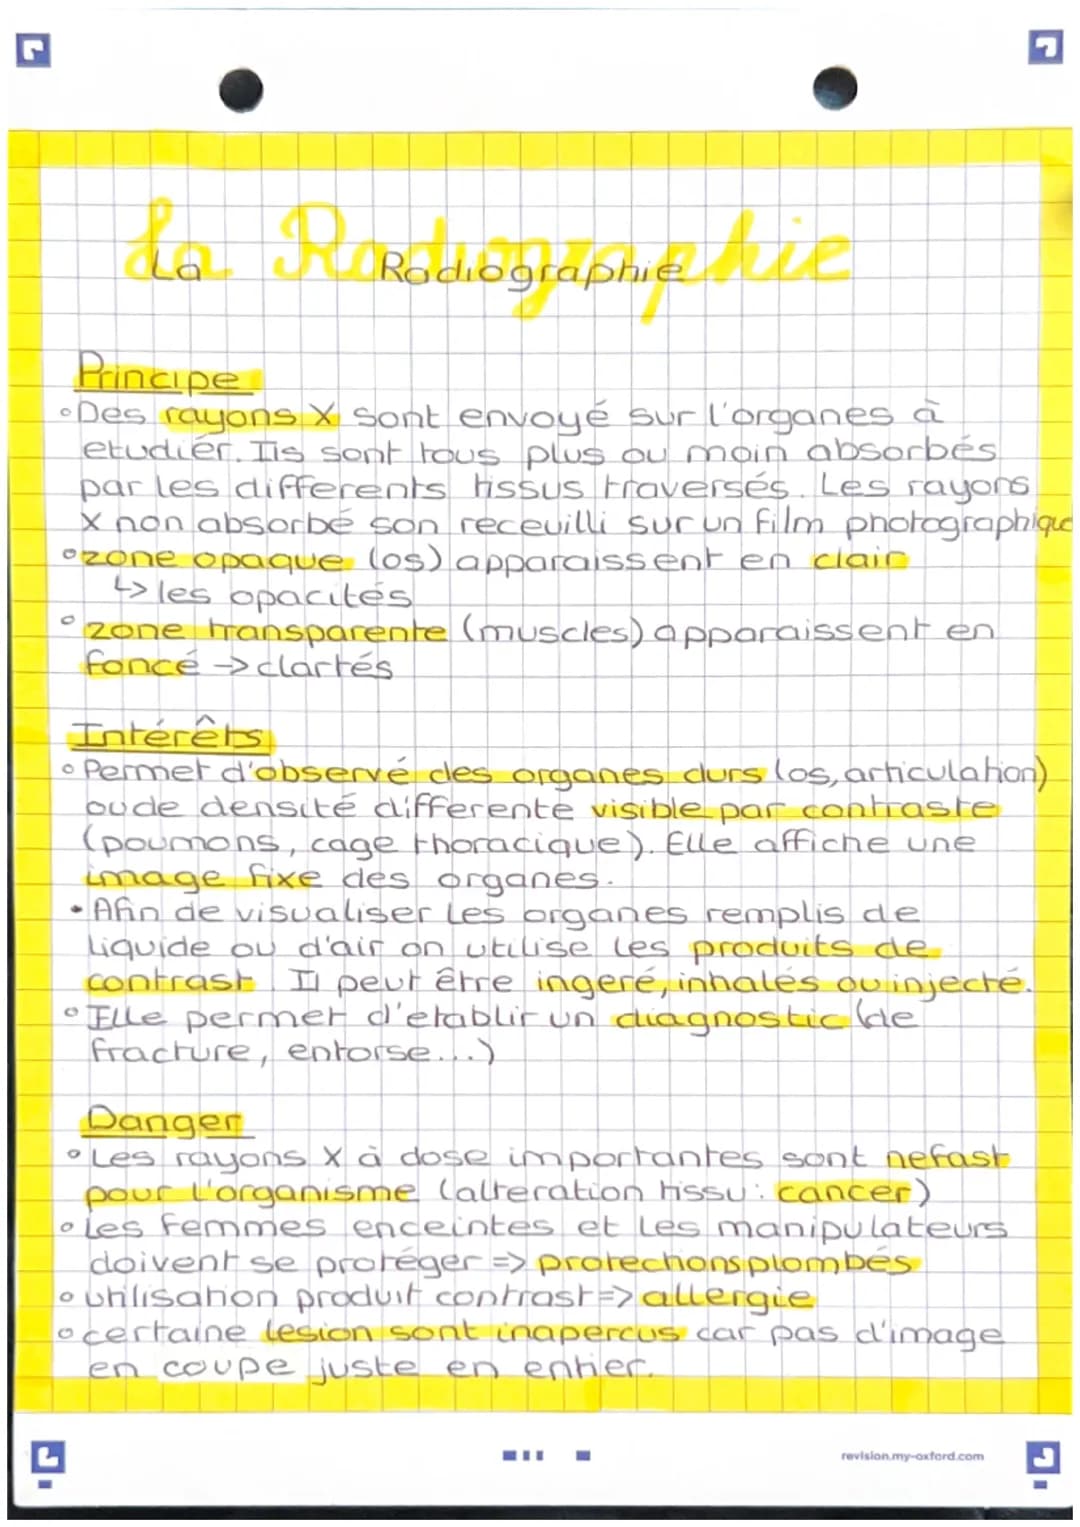 La Radiographie
La Radiographie
Principe
°Des rayons X sont envoyé sur l'organes à
etudiér. Ils sont tous plus ou moin absorbés
par les differents tissus traversés. Les rayons
X non absorbé son receuilli sur un film photographique
°zone opaque (os) apparaissent en clair
↳ les opacités
°zone transparente (muscles) apparaissent en
foncé -> clartés
Intérêts
°Permet d'observé des organes durs (os, articulation)
oude densité differente visible par contraste
(poumons, cage thoracique). Elle affiche une
image fixe des organes.
•Afin de visualiser les organes remplis de
liquide ou d'air on utilise les produits de
contrast. Il peut être ingeré, inhalés ou injecté.
°Elle permet d'etablir un diagnostic (de
fracture, entorse...)
Danger
°Les rayons X à dose importantes sont nefast
pour l'organisme (alteration tissu: cancer)
°les femmes enceintes et les manipulateurs
doivent se protéger => protections plombés
°utilisation produit contrast => allergie
°certaine lesion sont inapercus car pas d'image
en coupe juste en entier.
revision.my-oxford.com